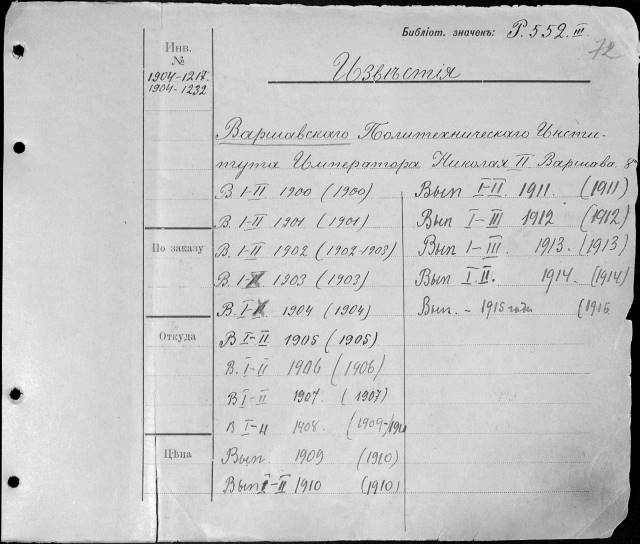 Библіот. значекъ: P. 552. III
72
Инв.
№
1904-1218.
1904-1232
По заказу
Откуда
Цѣна
Извѣстія
Варшавского Политехническаго Инсти-
тута Императора Николая II Варшава. 8°
В. I-II 1900 (1900)
В. I-II 1901 (1901)
В. I-II 1902 (1902-1903)
В. I- 1903 (1903)
В. I- 1904 (1904)
В I-II 1905 (1905)
В. I-II 1906 (1906)
В I-II 1907 (1907)
В I-II 1908. (1909-
Вып. 1909 (1910)
Вып I-II 1910 (1910)
Вып I-II. 1911. (1911)
Вып I-III 1912 (1912)
Вып I-III. 1913. (1913)
Вып I.II. 1914. (1914)
Вып. - 1915 года (1915